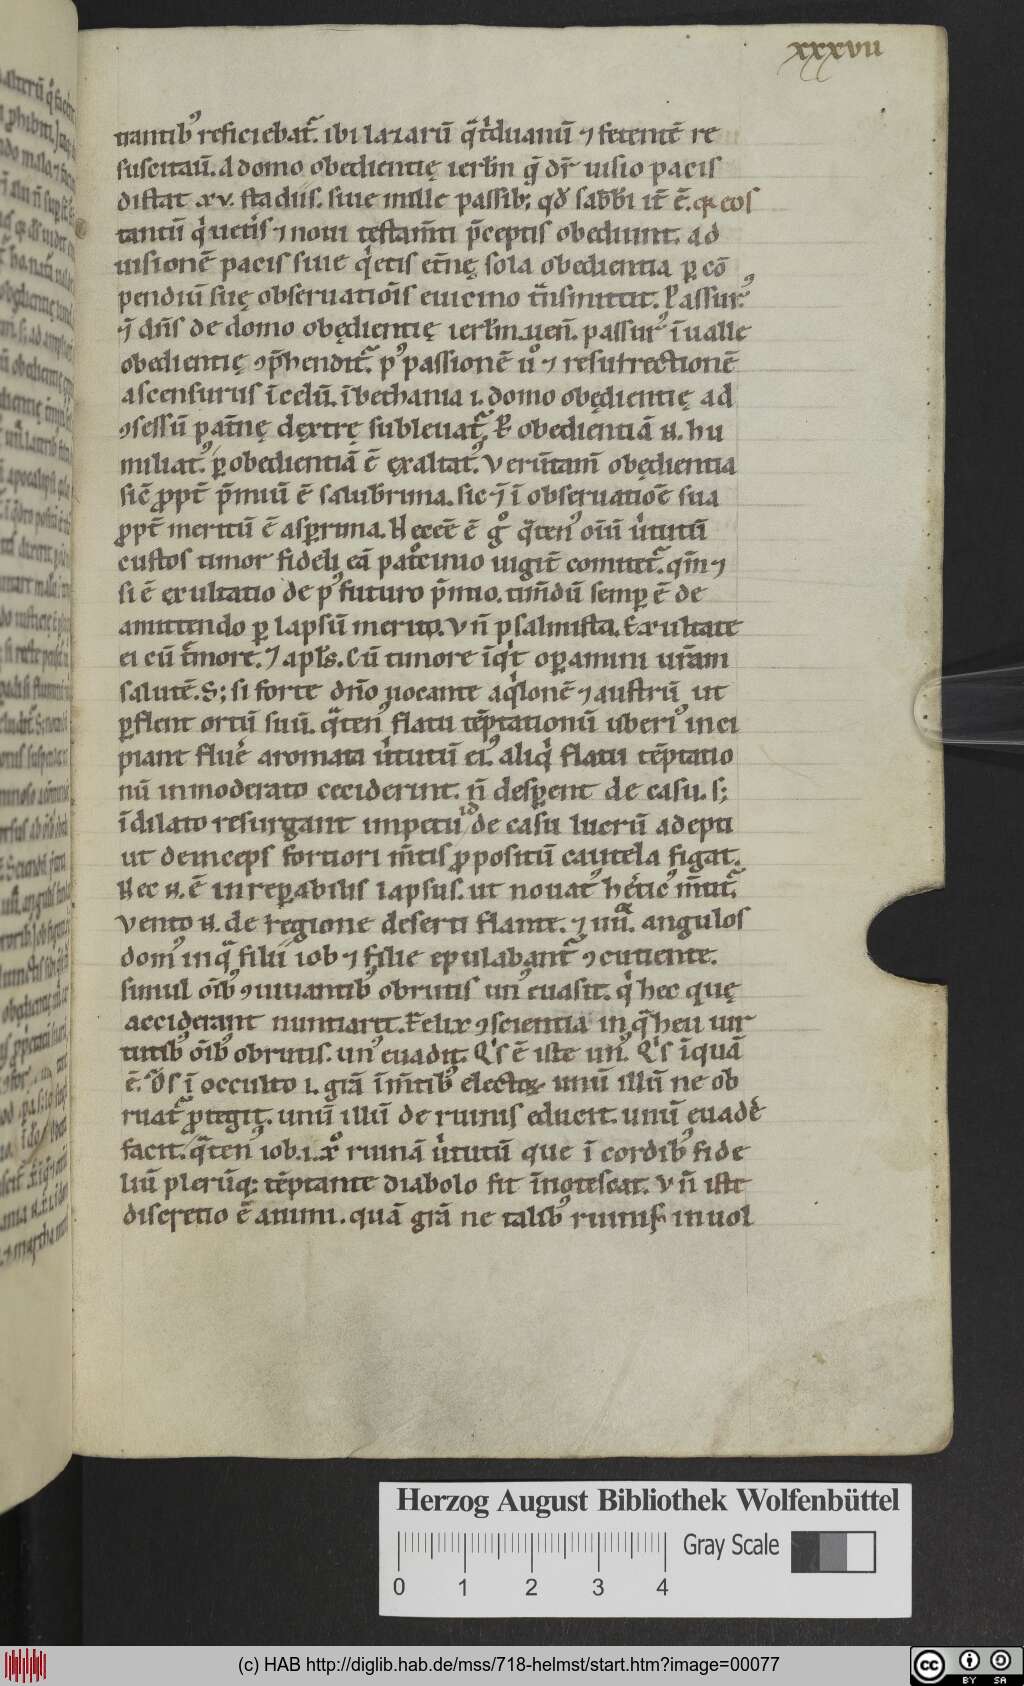 xxxvii
tiantib᾽ reficiebat᷑. ibi lazarū q̄t᷑duanū ⁊ fetentē re
suscitau̅. A domo obedientię ierl̅m q̄ dr̄ uisio pacis
distat xv. stadiis. siue mille passib; qd̄ sabb̅i it̄ ē. q᷒ eos
tantū qͥ uet᷑is ⁊ noui testam̄ti p̄ceptis obediunt. ad
uisionē pacis siue qͥetis et̄nę sola obedientia ꝑ cō
pendiū suę obseruatiōis euicino t̄nsmittit. Passur᾽
⁊̄ dn̄s de domo obędientię ierl̅m ueñ. passur᾽ ī ualle
obedientię ꝯp̄hendit᷑. p᾽ passionē u̅o ⁊ resurrectionē
ascensurus ī celū. ī bethania .i. domo obędientię ad
ꝯsessū pat̄nę dextrę subleuat᷑. P obedientiā n. hu
miliat᾽. ꝑ obedientiā ē exaltat᾽. Verūtam̄ obędientia
sic̄ ꝓpt̄ p̄miū ē saluberrima. sic ⁊̄ ī obseruatiōe sua
ꝓpt̄ meritū ē asꝑrima. Necēe ē gͦ q̄ten᾽ oīū uͥtutū
custos timor fideli eā pat̊cinio uigit̄ comitet᷑. qm̄ ⁊
si ē exultatio de p᾽ futuro p̄mio. tim̄dū semꝑ ē de
amittendo ꝑ lapsū merito. Vn̄ psalmista. Exultate
ei cū t̄more. ⁊ apl̅s. Cū timore īqͥt oꝑamini ur̄am
salutē. S; si forte dn̄o uocante aqͥlonē ⁊ austrū ut
ꝑflent ortū suū. q̄ten᾽ flatu tēptationū uberi᾽ inci
piant fluē aromata uͥtutū ei᾽. aliqͥ flatu tēptatio
nū inmoderato ceciderint. n̄ desꝑent de casu. s;
ī dilato resurgant impetu de casu lucrū adepti
ut deinceps fortiori m̄tis ꝓpositū cautela figat.
Nec n. ē inreꝑabilis lapsus. ut nouat᾽ hēticᵒ m̄tit᷑.
Vento n. de regione deserti flante. ⁊ iiii. angulos
dom᾽ in q̄ filii iob ⁊ filie epulabant᷑ ꝯcutiente.
simul oīb᾽ ꝯuiuantib᾽ obrutis un᾽ euasit. qͥ hec quę
acciderant nuntiaret. Felix ꝯscientia in q̄ heu uir
tutib᾽ oīb᾽ obrutis. un᾽ euadit. Qͥs ē iste un᾽. Qͥs īquā
ē. D̄s ī occulto .i. grā ī m̄tib᾽ electoꝝ unū illū ne ob
ruat᷑ ꝓtegit. unū illū de ruinis educit. unū euadē
facit. q̄ten᾽ iob .i. xp̊ ruinā uͥtutū que ī cordib᾽ fide
liū plerūq; tēptante diabolo fit īnotescat. Vn̄ iste
discretio ē animi. quā grā ne talib᾽ ruinis inuol
Herzog August Bibliothek Wolfenbüttel
Gray Scale
0 1 2 3 4
(c) HAB http://diglib.hab.de/mss/718-helmst/start.htm?image=00077
cc BY SA